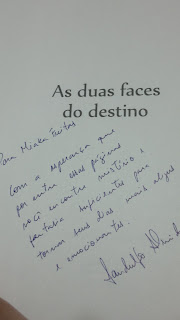 As duas faces
do destino
Para Miaka Freitas
Com a esperança que
por entre essas páginas
você encontre mistério e
fantasia suficientes para
tornar seus dias mais alegres
e emocionantes.